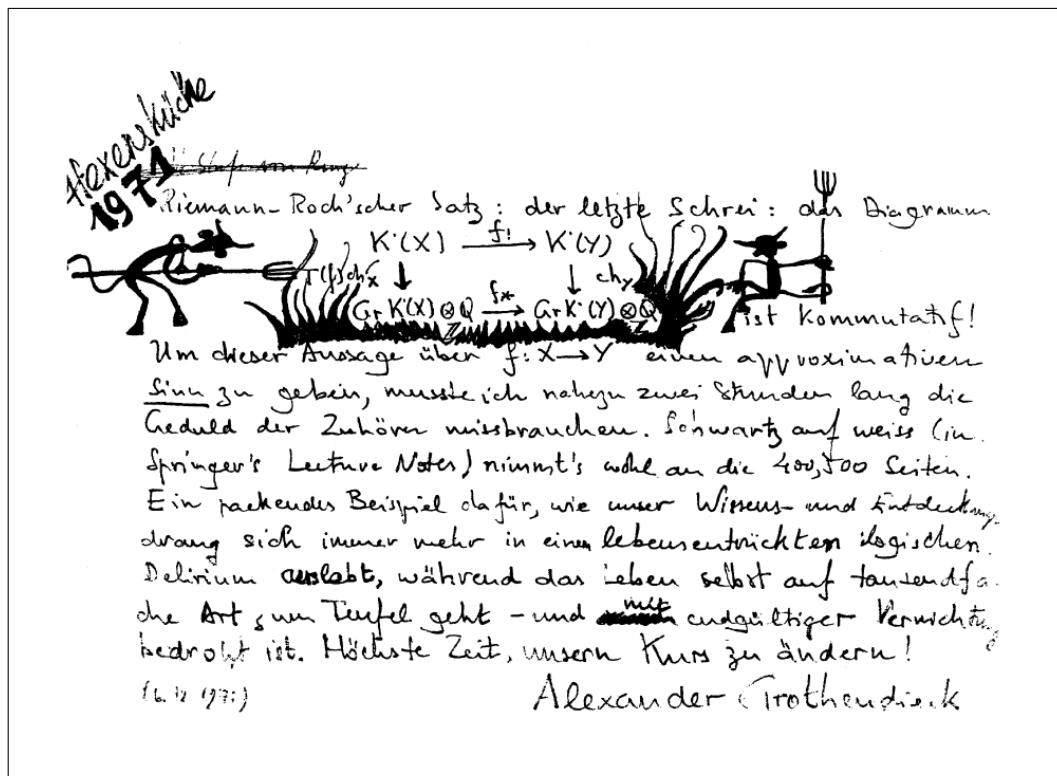 Hexenküche
1971
Riemann-Roch'scher Satz: der letzte Schrei: das Diagramm
K˙(X) f! K˙(Y)
T(f)chₓ ch_Y
Gr K˙(X)⊗Q f* Gr K˙(Y)⊗Q
Z Z
ist kommutatif!
Um dieser Aussage über f: X→Y einen approximativen
Sinn zu geben, musste ich nahezu zwei Stunden lang die
Geduld der Zuhörer missbrauchen. Schwartz auf weiss (in
Springer's Lecture Notes) nimmt's wohl an die 400, 500 Seiten.
Ein packendes Beispiel dafür, wie unser Wissens- und Entdeckungs
drang sich immer mehr in einem lebensentrückten logischen
Delirium auslebt, während das Leben selbst auf tausendfa
che Art zum Teufel geht – und mit endgültiger Vernichtung
bedroht ist. Höchste Zeit, unsern Kurs zu ändern!
Alexander Grothendieck